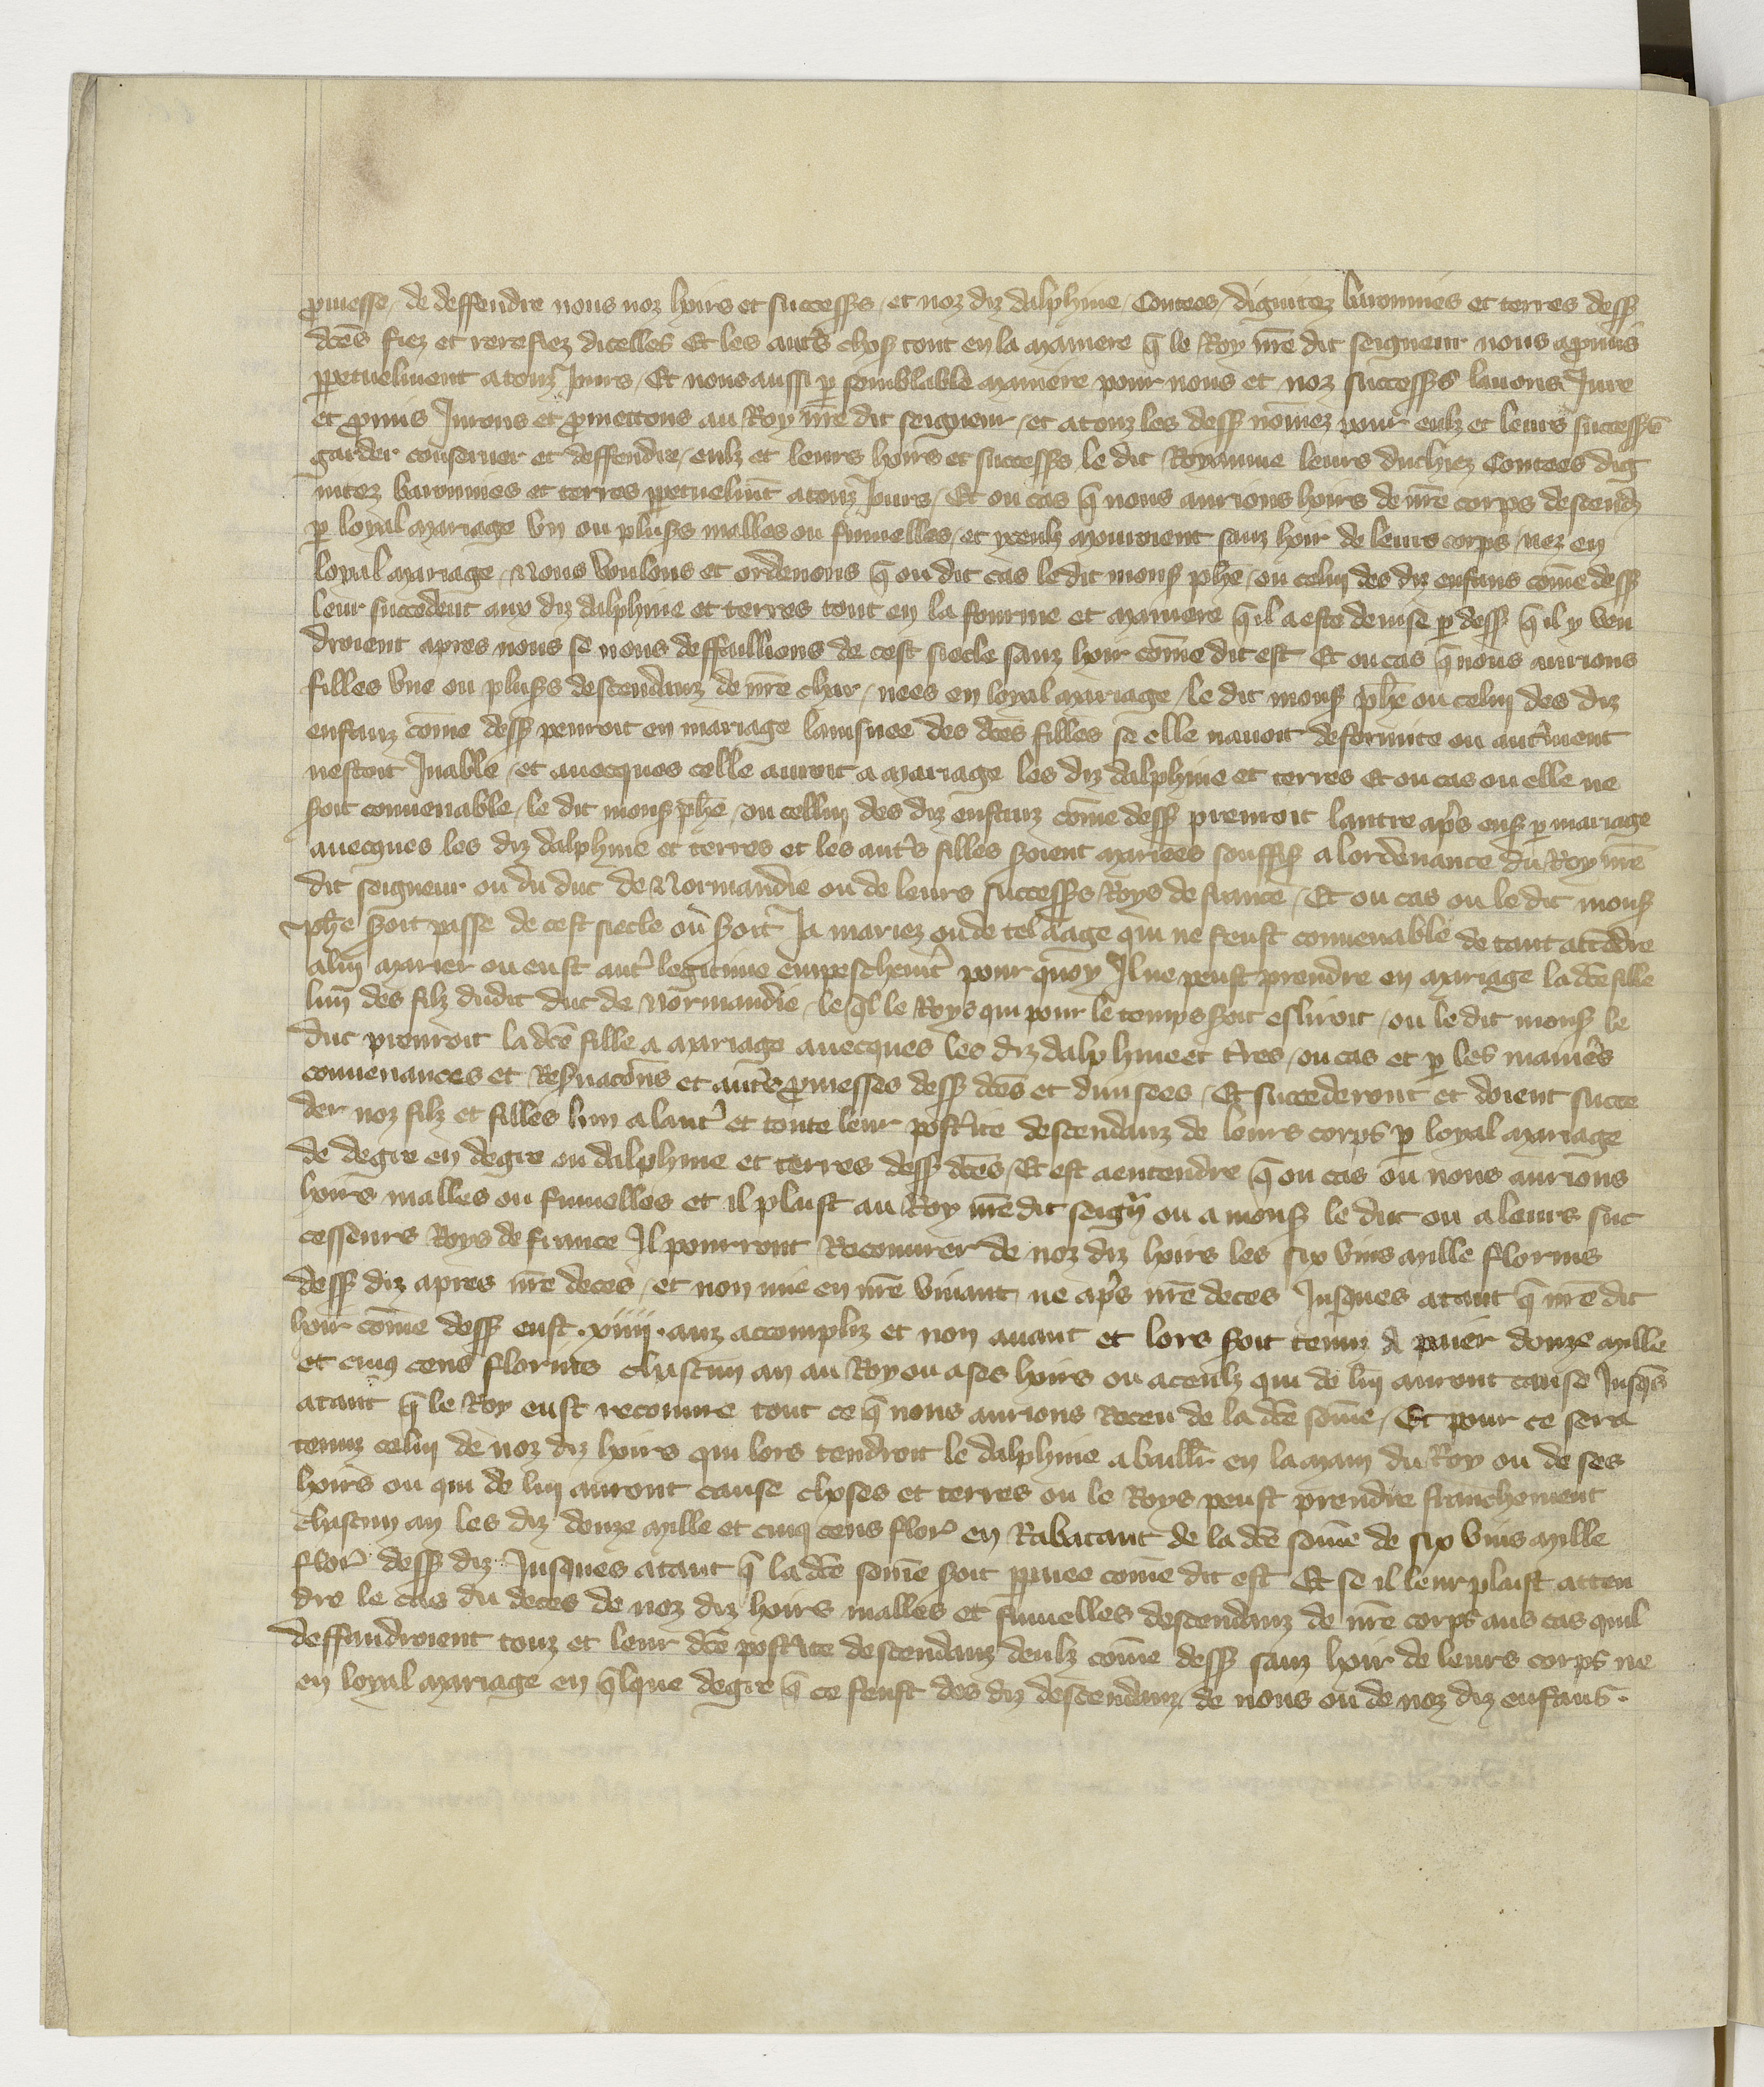 ꝓmesse / de deffendre nous noz hoirs et successꝭ / et noz diz dalphine / Contees / dignitez baronnies et terres dessꝭ
dc̄es fiez et rerefiez dicelles Et les autꝰs chosꝭ tout en la maniere q̄ le Roy nr̄e dit seigneur nous a ꝓmis
ꝑpetuelment a touz Jours / Et nous aussi ꝑ semblable maniere pour nous et noz successꝭ lauons Jure
et ꝓmis Jurons et ꝓmettons au Roy nr̄e dit seigneur / et a touz les dessꝭ nōmez pour eulz et leurs successꝭ
garder conseruer et deffendre / eulz et leurs hoirs et successꝭ le dit Royaume leurs duchiez Contees dig
nitez baronnies et terres ꝑpetuelmt̄ a touz Jours / Et ou cas q̄ nous aurions hoirs de nr̄e corps descendꝫ
ꝑ loyal mariage vn ou plusꝭs malles ou fumelles / et yceulz mouroient sanz hoir de leurs corps / nez en
loyal mariage / Nous voulons et ordenons q̄ ou dit cas le dit monsꝭ ph̄e / ou celuy des diz enfans cōme dessꝭ
leur succedent aux diz dalphine et terres tout en la fourme et maniere q̄ il a este deuise ꝑ dessꝭ q̄ il y ven
droient apres nous se nous deffaillions de cest siecle sanz hoir cōme dit est Et ou cas q̄ nous aurions
filles vne ou plusꝭs descendanz de nr̄e char / nees en loyal mariage / le dit monsꝭ ph̄e ou celuy des diz
enfanz cōme dessꝭ penroit en mariage lainsnee des dc̄es filles se elle nauoit deformite ou autꝰment
nestoit Jnable / et auecques celle auroit a mariage les diz dalphine et terres Et ou cas ou elle ne
soit conuenable / le dit monsꝭ ph̄e / ou celluy des diz enfanz cōme dessꝭ prenroit lautre ap̄s ensꝭ ꝑ mariage
auecques les diz dalphine et terres et les autꝰs filles soient mariees souffisꝭ a lordenance du Roy nr̄e
dit seigneur ou du duc de Normandie ou de leurs successꝭs Roys de france / Et ou cas ou le dit monsꝭ
ph̄e soit passe de cest siecle ou soit Ja mariez ou de tel aage qui ne feust conuenable de tant attēdre
a luy marier ou eust autꝰ legitime empeschemt̄ pour quoy Il ne peust prendre en mariage la dc̄e fille
lun des filz dudit duc de Normandie / le q̄l le Roys qui pour le temps soit esliroit / ou le dit monsꝭ le
duc prenroit la dc̄e fille a mariage auecques les diz dalphine et tꝰres / ou cas et ꝑ les manieꝰs
conuenances et Reseruacōns et autꝰs ꝓmesses dessꝭ dc̄es et diuisees / Et succederont et doient succe
der noz filz et filles lun a lautꝰ et toute leur postꝰite descendanz de leurs corps ꝑ loyal mariage
de degre en degre ou dalphine et terres dessꝭ dc̄es / Et est a entendre q̄ ou cas ou nous aurions
hoirs malles ou fumelles et il plaist au Roy nr̄e dit seigr̄ ou a monsꝭ le duc ou a leurs suc
cesseurs Roys de france Il pourront Recouurer de noz diz hoirs les six vins mille florins
dessꝭ diz apres nr̄e deces / et non mie en nr̄e viuant ne ap̄s nr̄e deces Jusques atant q̄ nr̄e dit
hoir cōme dessꝭ eust .xiiii. anz accompliz et non auant et lors soit tenuz A paier douze mille
et cinq cens florins chascun an au Roy ou a ses hoirs ou a ceulz qui de luy auront cause Jusqs̄
atant q̄ le Roy eust recouure tout ce q̄ nous aurions Receu de la dc̄e sōme / Et pour ce sera
tenuz celuy de noz diz hoirs qui lors tendroit le dalphine a baillr̄ en la main du Roy ou de ses
hoirs ou qui de luy auront cause choses et terres ou le Roys peust prendre franchement
chascun an les diz douze mille et cinq cens florꝰ en Rabatant de la dc̄e sōme de six vins mille
florꝰ dessꝭ diz Jusques atant q̄ la dc̄e sōme soit ꝑpaiee cōme dit est Et se il leur plaist atten
dre le cas du deces de noz diz hoirs malles et fumelles descendanz de nr̄e corps aus cas quil
deffaudroient touz et leur dc̄e postꝰite descendanz deulz cōme dessꝭ sanz hoir de leurs corps ne
en loyal mariage en q̄lque degre q̄ ce feust des diz descendanz de nous ou de noz diz enfans.